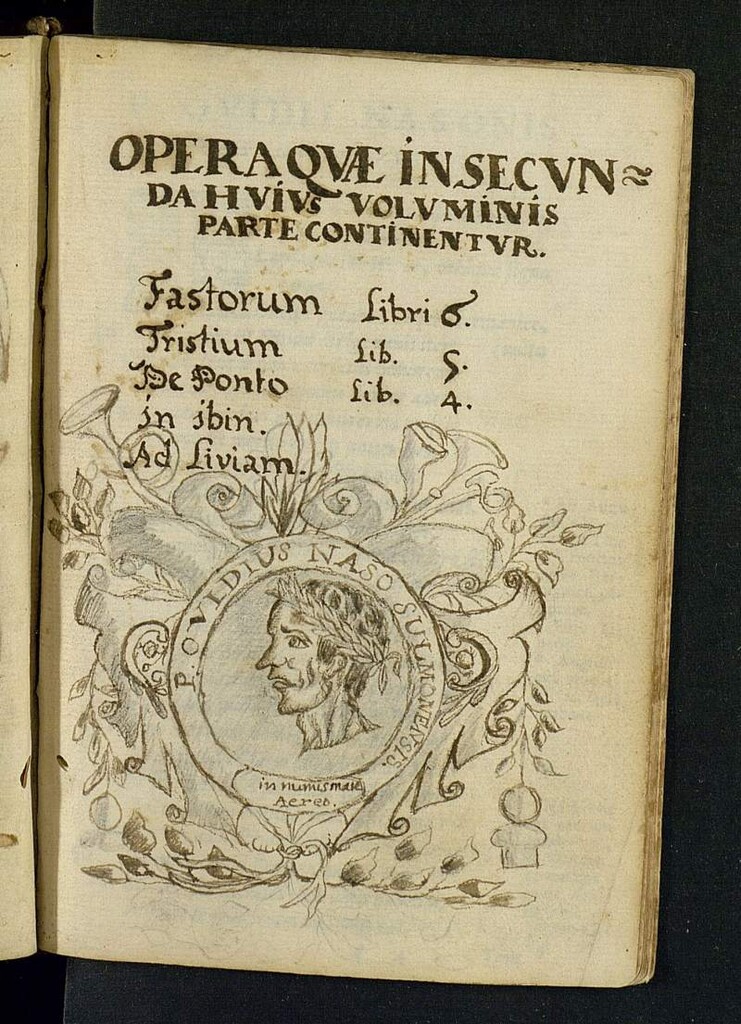 OPERA QVÆ IN SECVN≈
DA HVIVS VOLVMINIS
PARTE CONTINENTVR.
Fastorum Libri 6.
Tristium Lib. 5.
De Ponto Lib. 4.
in ibin.
Ad Liviam.
P. OVIDIUS NASO SULMONENSIS.
in numismate
Aereo.